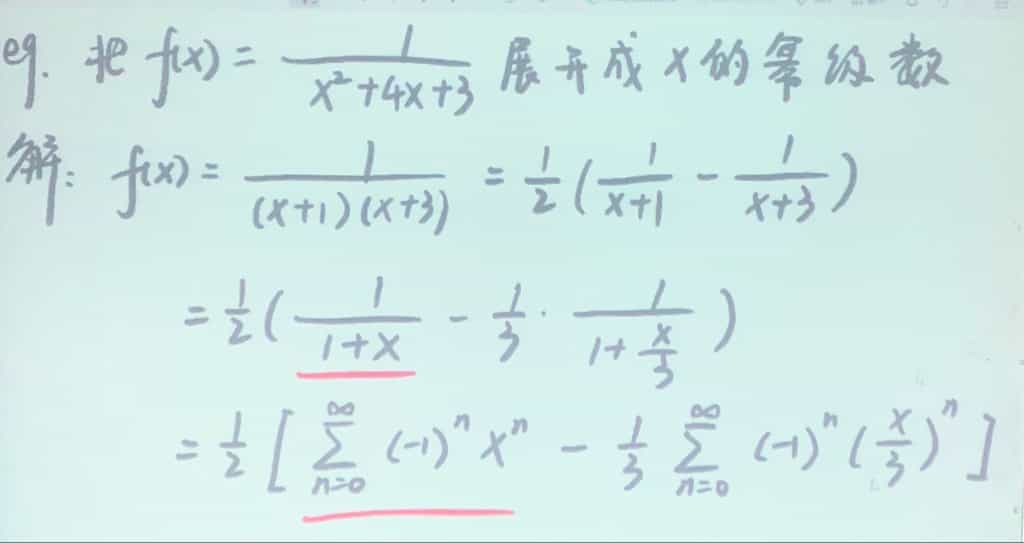 eg. 把 f(x) = \frac{1}{x^2+4x+3} 展开成 x 的幂级数
解: f(x) = \frac{1}{(x+1)(x+3)} = \frac{1}{2}(\frac{1}{x+1} - \frac{1}{x+3})
= \frac{1}{2}(\frac{1}{1+x} - \frac{1}{3} \cdot \frac{1}{1+\frac{x}{3}})
= \frac{1}{2}[\sum_{n=0}^{\infty} (-1)^n x^n - \frac{1}{3} \sum_{n=0}^{\infty} (-1)^n (\frac{x}{3})^n]